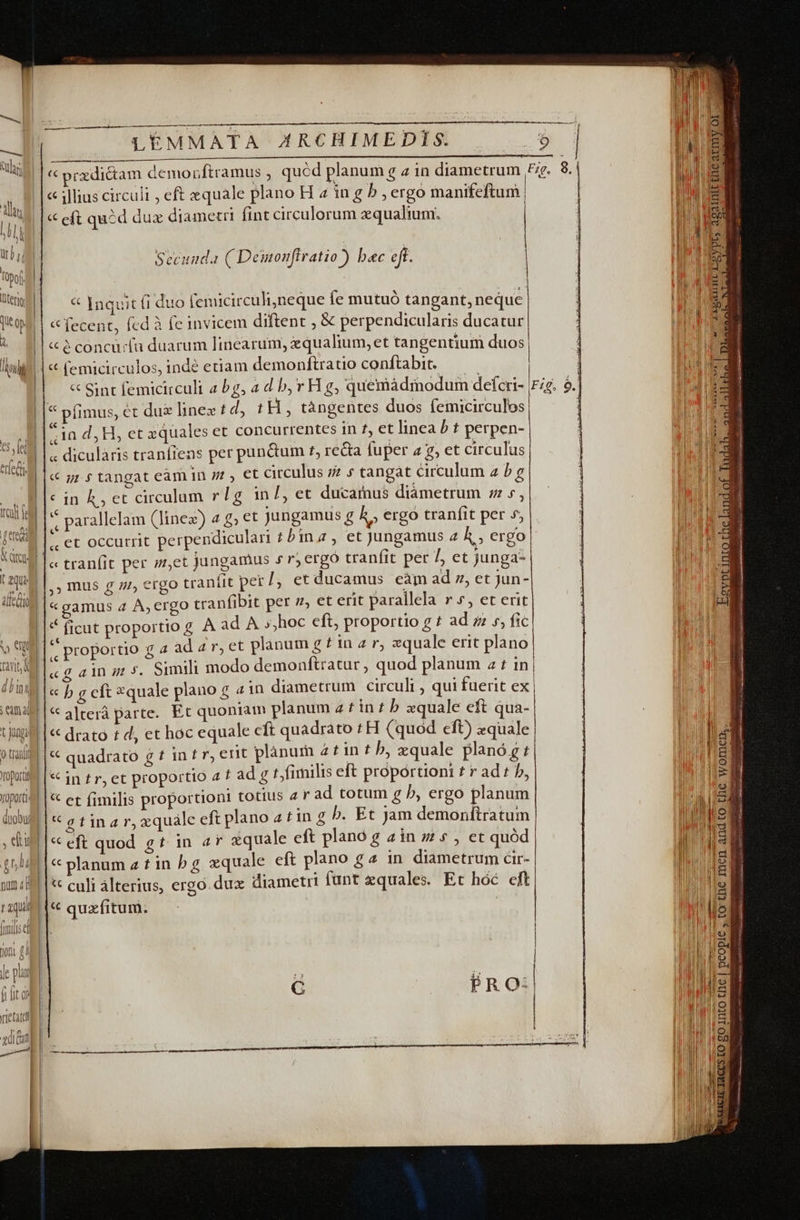 LEMMATA ARCHIMEDIS. 9
“ prædictam demonſtramus, quòd planum g a in diametrum Fig. 8.
“ illius circuli, eſt æquale plano H a in g b, ergo manifeſtum
“ eſt quòd duæ diametri ſint circulorum æqualium.
Secunda (Demonſtratio) hæc eſt.
“ Inquit ſi duo ſemicirculi, neque ſe mutuò tangant, neque
“ ſecent, ſed à ſe invicem diſtent, & perpendicularis ducatur
“ è concurſu duarum linearum, æqualium, et tangentium duos
“ ſemicirculos, indè etiam demonſtratio conſtabit.
“ Sint ſemicirculi a b g, a d b, r H g, quemadmodum deſcri- Fig. 9.
“ pſimus, et duæ lineæ t d, t H, tangentes duos ſemicirculos
“ in d, H, et æquales et concurrentes in t, et linea b t perpen-
“ dicularis tranſiens per punctum t, recta ſuper a g, et circulus
“ m s tangat eam in m, et circulus m s tangat circulum a b g
“ in k, et circulum r l g in l, et ducamus diametrum m s,
“ parallelam (lineæ) a g, et jungamus g k, ergo tranſit per s,
“ et occurrit perpendiculari t b in a, et jungamus a k, ergo
“ tranſit per m, et jungamus s r, ergo tranſit per l, et junga-
,, mus g m, ergo tranſit per l, et ducamus eam ad n, et jun-
“ gamus a A, ergo tranſibit per n, et erit parallela r s, et erit
“ ſicut proportio g A ad A s, hoc eſt, proportio g t ad m s, ſic
“ proportio g a ad a r, et planum g t in a r, æquale erit plano
“ g a in m s. Simili modo demonſtratur, quod planum a t in
“ b g eſt æquale plano g a in diametrum circuli, qui fuerit ex
“ alterâ parte. Et quoniam planum a t in t b æquale eſt qua-
“ drato t d, et hoc equale eſt quadrato t H (quod eſt) æquale
“ quadrato g t in t r, erit planum a t in t b, æquale plano g t
“ in t r, et proportio a t ad g t, ſimilis eſt proportioni t r ad t b,
“ et ſimilis proportioni totius a r ad totum g b, ergo planum
“ g t in a r, æquale eſt plano a t in g b. Et jam demonſtratum
“ eſt quod g t in a r æquale eſt plano g a in m s, et quòd
“ planum a t in b g æquale eſt plano g a in diametrum cir-
“ culi alterius, ergo duæ diametri ſunt æquales. Et hoc eſt
“ quæſitum.
C PRO-